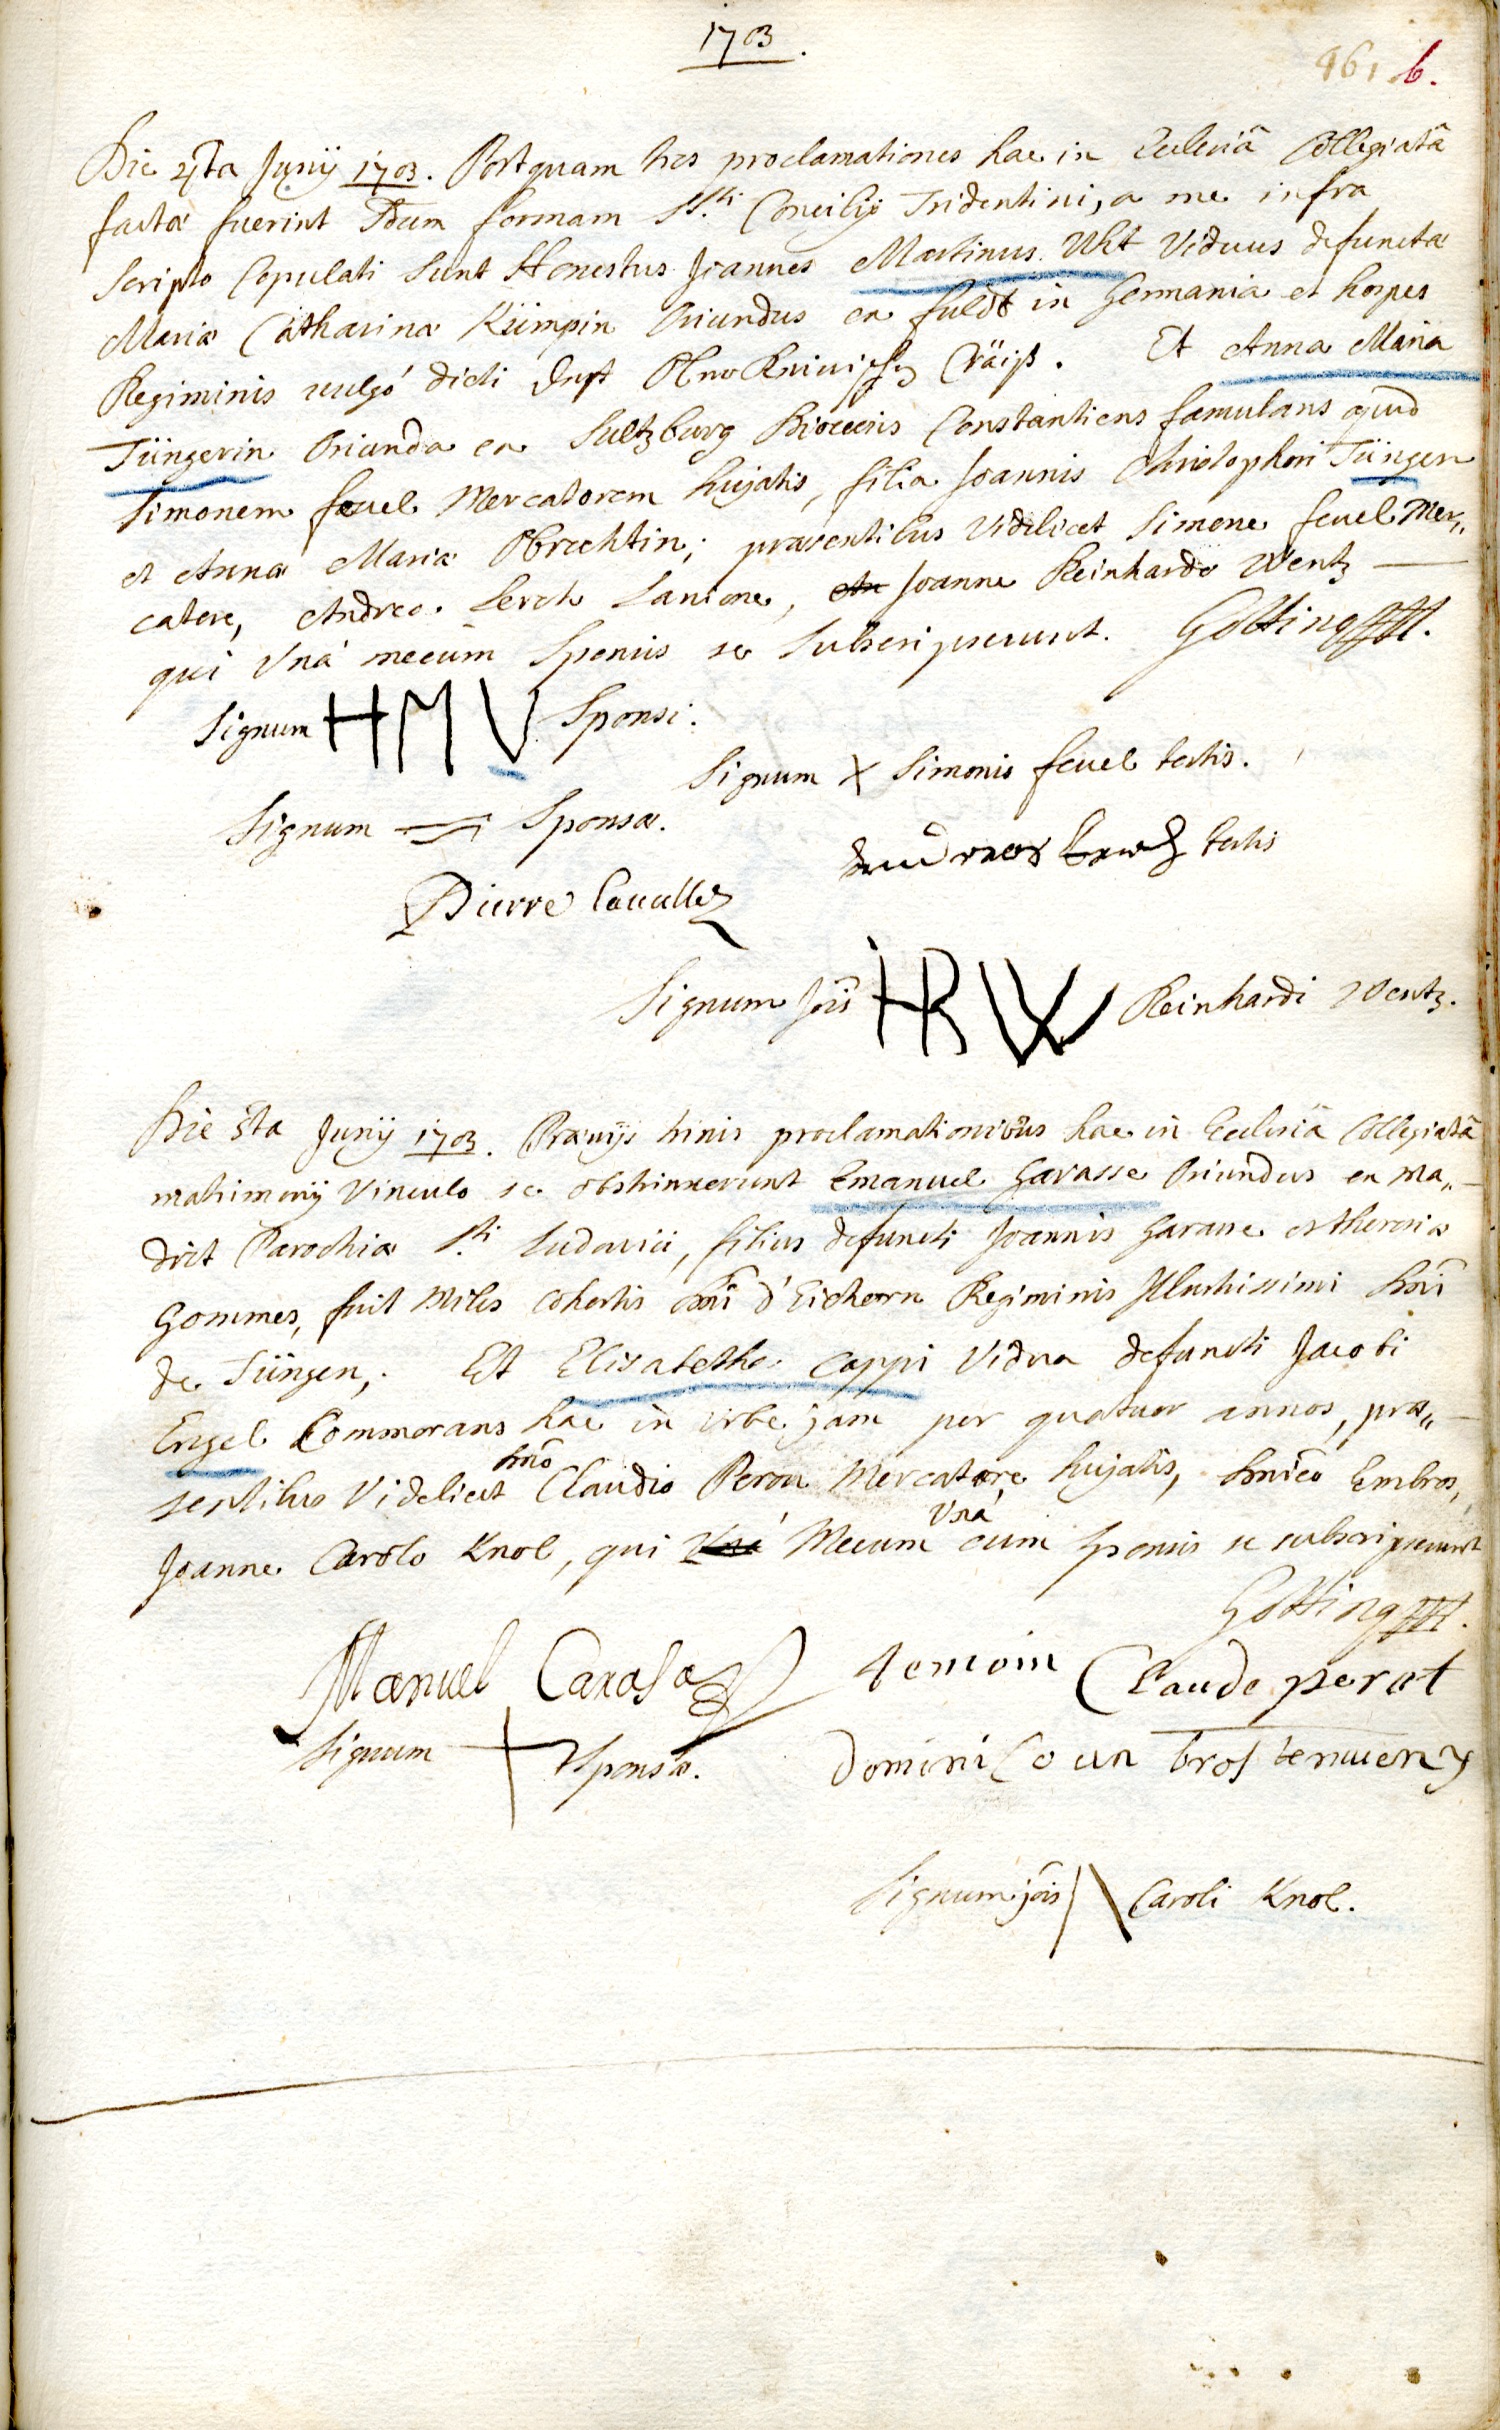 1703.
961 b.
Die 4ta Junÿ 1703. Postquam tres proclamationes hac in Ecclesiâ Collegiatâ
factæ fuerint scdum formam SS.ti Concilÿ Tridentini, a me infra
scripto Copulati sunt Honestus Joannes Martinus Uht Viduus defunctæ
Mariæ Catharinæ Kümpin Oriundus ex fuldt in Germania et hospes
Regiminis vulgó dicti Cräiß. Et Anna Maria
Tüngerin Orianda ex Sultzburg Diocecis Constantiens famulans apud
Simonem feuel Mercatorem hujatis, filia Joannis Christophori Tüngen
et Annæ Mariæ Obrechtin; præsentibus Videlicet Simone feuel Mer„
catore, Andreo Lerch Lanione, Joanne Reinhardo Wentz
qui Vná mecum Sponsis se subscripserunt. Gotting
Signum HMV Sponsi.
Signum X Simonis feuel testis.
Signum Sponsæ.
testis
Pierre Cauallez
Signum Jois HRW Reinhardi Wentz.
Die 5ta Junÿ 1703. Prævÿs trinis proclamationibus hac in Ecclesiâ Collegiatâ
matrimonÿ Vinculo se obstrinxerunt Emanuel Garasse Oriundus ex Ma„
drit Parochiæ S.ti Ludovici, filius defuncti Joannis Garasse et theresiæ
Gommes, fuit Miles cohortis Dni d'Eichorn Regiminis Illustrissimi Dni
de Tüngen,. Et Elisabetha Cappi Vidua defuncti Jacobi
Engel Commorans hac in Vrbe jam per quatuor annos, præ„
sentibus Videlicet Dno Claudio Perou Mercatore hujatis, Dnico Embros,
Joanne Carolo Knol, qui Vná Mecum Vná cum Sponsis se subscripserunt
Gotting
Manuel Carasa
temoin Claude perot
Signum Sponsæ.
Dominico un bros
Signum jois Caroli Knol.